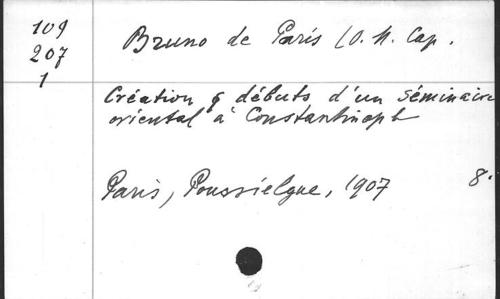 109
207
1
Bruno de Paris (O. M. Cap.
Création & débuts d'un séminaire
oriental à Constantinople
Paris, Poussielgue, 1907 8°